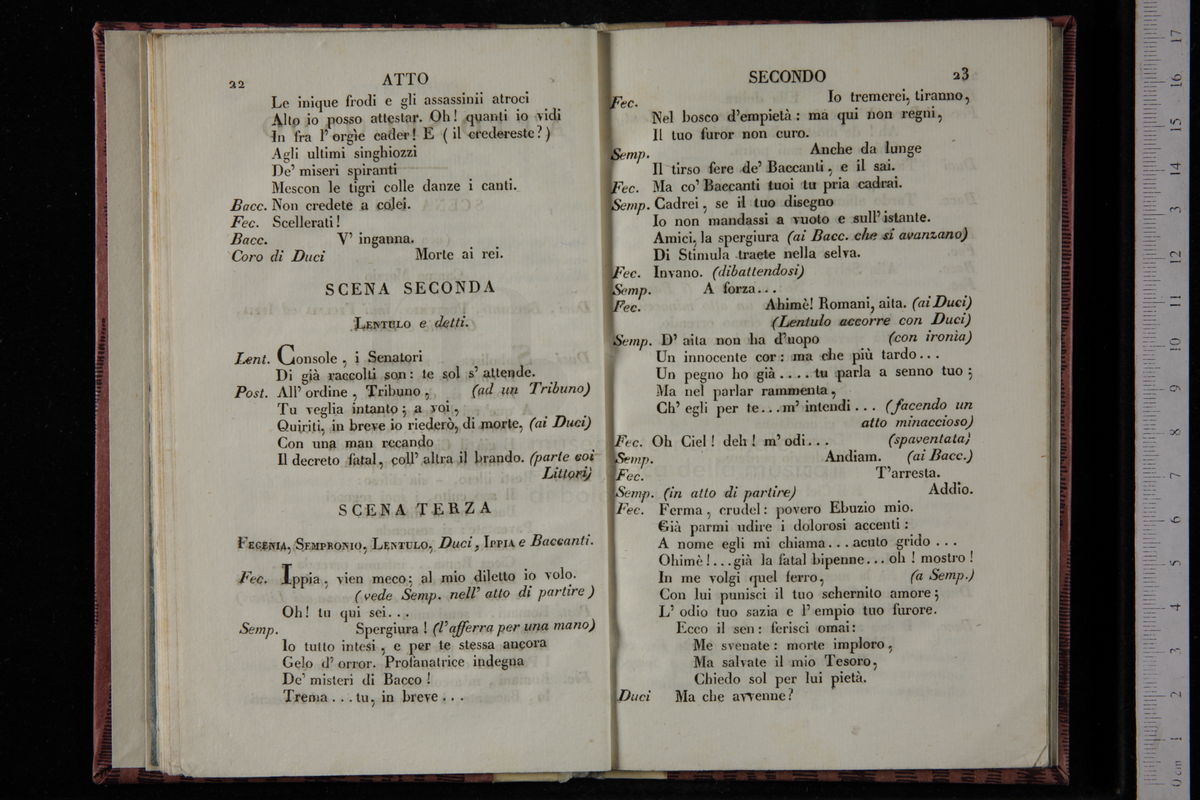 22 ATTO
Le inique frodi e gli assassinii atroci
Alto io posso attestar. Oh! quanti io vidi
In fra l'orgie cader! E (il credereste?)
Agli ultimi singhiozzi
De' miseri spiranti
Mescon le tigri colle danze i canti.
Bacc. Non credete a colei.
Fec. Scellerati!
Bacc. V' inganna.
Coro di Duci Morte ai rei.
SCENA SECONDA
LENTULO e detti.
Lent. Console, i Senatori
Di già raccolti son: te sol s' attende.
Post. All' ordine, Tribuno, (ad un Tribuno)
Tu veglia intanto; a voi,
Quiriti, in breve io riederò, di morte, (ai Duci)
Con una man recando
Il decreto fatal, coll' altra il brando. (parte coi
Littori)
SCENA TERZA
FECENIA, SEMPRONIO, LENTULO, Duci, IPPIA e Baccanti.
Fec. Ippia, vien meco; al mio diletto io volo.
(vede Semp. nell' atto di partire)
Oh! tu qui sei...
Semp. Spergiura! (l'afferra per una mano)
Io tutto intesi, e per te stessa ancora
Gelo d' orror. Profanatrice indegna
De' misteri di Bacco!
Trema... tu, in breve...
SECONDO 23
Fec. Io tremerei, tiranno,
Nel bosco d'empietà: ma qui non regni,
Il tuo furor non curo.
Semp. Anche da lunge
Il tirso fere de' Baccanti, e il sai.
Fec. Ma co' Baccanti tuoi tu pria cadrai.
Semp. Cadrei, se il tuo disegno
Io non mandassi a vuoto e sull' istante.
Amici, la spergiura (ai Bacc. che si avanzano)
Di Stimula traete nella selva.
Fec. Invano. (dibattendosi)
Semp. A forza...
Fec. Ahimè! Romani, aita. (ai Duci)
(Lentulo accorre con Duci)
Semp. D' aita non ha d'uopo (con ironia)
Un innocente cor: ma che più tardo...
Un pegno ho già.... tu parla a senno tuo;
Ma nel parlar rammenta,
Ch' egli per te... m' intendi... (facendo un
atto minaccioso)
Fec. Oh Ciel! deh! m' odi... (spaventata)
Semp. Andiam. (ai Bacc.)
Fec. T'arresta.
Semp. (in atto di partire) Addio.
Fec. Ferma, crudel: povero Ebuzio mio.
Già parmi udire i dolorosi accenti:
A nome egli mi chiama... acuto grido...
Ohimè!... già la fatal bipenne... oh! mostro!
In me volgi quel ferro, (a Semp.)
Con lui punisci il tuo schernito amore;
L' odio tuo sazia e l' empio tuo furore.
Ecco il sen: ferisci omai:
Me svenate: morte imploro,
Ma salvate il mio Tesoro,
Chiedo sol per lui pietà.
Duci Ma che avvenne?